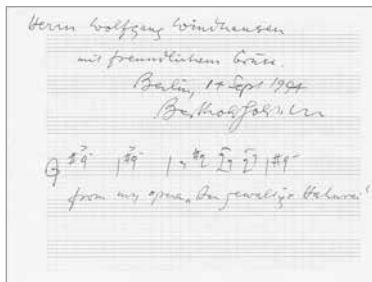 Herrn Wolfgang Windhausen
mit freundlichem Gruss.
Berlin, 14 Sept 1994
Berthold Goldschmidt
from my opera „Der gewaltige Hahnrei"